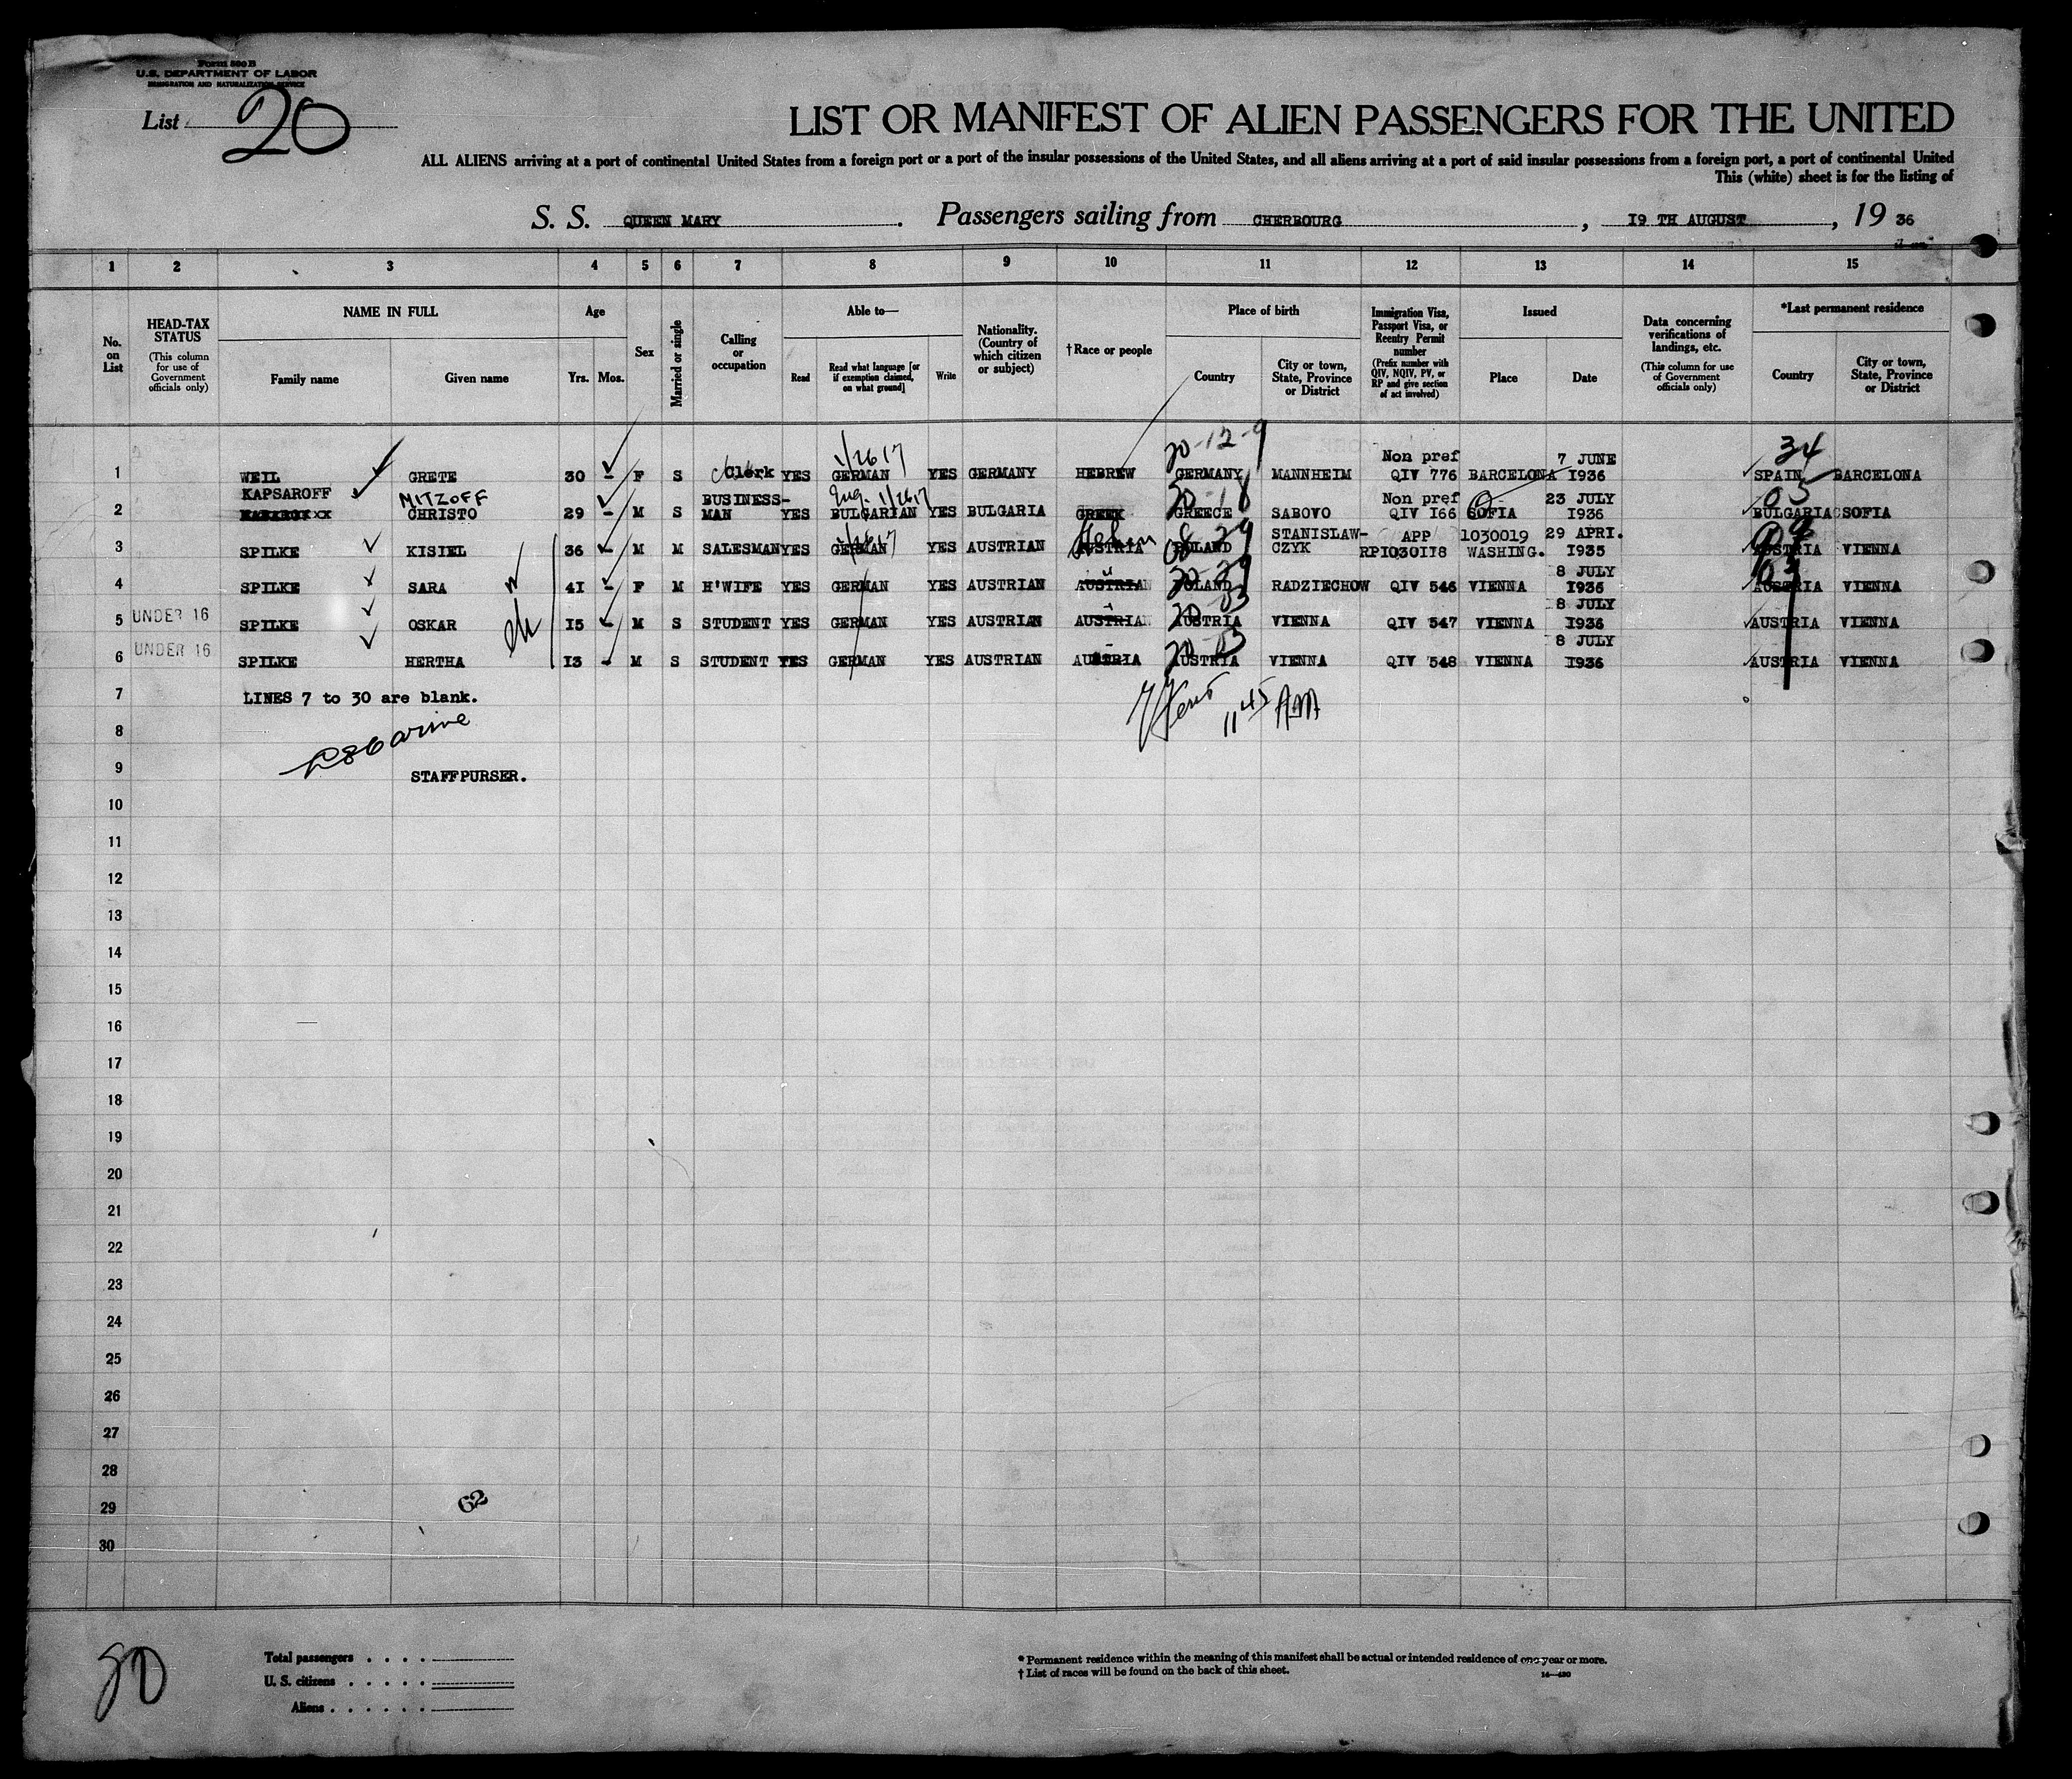 Form 500 B
U.S. DEPARTMENT OF LABOR
IMMIGRATION AND NATURALIZATION SERVICE
List 20
LIST OR MANIFEST OF ALIEN PASSENGERS FOR THE UNITED
ALL ALIENS arriving at a port of continental United States from a foreign port or a port of the insular possessions of the United States, and all aliens arriving at a port of said insular possessions from a foreign port, a port of continental United
This (white) sheet is for the listing of
S. S. QUEEN MARY. Passengers sailing from CHERBOURG, 19 TH AUGUST, 19 36
1 2 3 4 5 6 7 8 9 10 11 12 13 14 15
No. on List
HEAD-TAX STATUS
(This column for use of Government officials only)
NAME IN FULL
Family name
Given name
Age
Yrs. Mos.
Sex
Married or single
Calling or occupation
Able to—
Read
Read what language [or if exemption claimed, on what ground]
Write
Nationality. (Country of which citizen or subject)
†Race or people
Place of birth
Country
City or town, State, Province or District
Immigration Visa, Passport Visa, or Reentry Permit number
(Prefix number with QIV, NQIV, PV, or RP and give section of act involved)
Issued
Place
Date
Data concerning verifications of landings, etc.
(This column for use of Government officials only)
*Last permanent residence
Country
City or town, State, Province or District
20-12-9 34
Non pref 7 JUNE
1 WEIL GRETE 30 - F S Clerk YES GERMAN YES GERMANY HEBREW GERMANY MANNHEIM QIV 776 BARCELONA 1936 SPAIN BARCELONA
KAPSAROFF MITZOFF BUSINESS- Eng. Non pref 23 JULY 03
2 CHRISTO 29 - M S MAN YES BULGARIAN YES BULGARIA GREEK GREECE SABOVO QIV 166 SOFIA 1936 BULGARIA SOFIA
STANISLAW- APP 1030019 29 APRI.
3 SPILKE KISIEL 36 - M M SALESMAN YES GERMAN YES AUSTRIAN AUSTRIA POLAND CZYK RP1030118 WASHING. 1935 AUSTRIA VIENNA
8 JULY
4 SPILKE SARA 41 - F M H'WIFE YES GERMAN YES AUSTRIAN AUSTRIAN POLAND RADZIECHOW QIV 546 VIENNA 1936 AUSTRIA VIENNA
8 JULY
5 UNDER 16 SPILKE OSKAR 15 - M S STUDENT YES GERMAN YES AUSTRIAN AUSTRIAN AUSTRIA VIENNA QIV 547 VIENNA 1936 AUSTRIA VIENNA
8 JULY
6 UNDER 16 SPILKE HERTHA 13 - M S STUDENT YES GERMAN YES AUSTRIAN AUSTRIA AUSTRIA VIENNA QIV 548 VIENNA 1936 AUSTRIA VIENNA
7 LINES 7 to 30 are blank.
11 45 AM
8
9 STAFF PURSER.
10
11
12
13
14
15
16
17
18
19
20
21
22
23
24
25
26
27
28
29 62
30
20
Total passengers
U. S. citizens
Aliens
* Permanent residence within the meaning of this manifest shall be actual or intended residence of one year or more.
† List of races will be found on the back of this sheet.
14—430